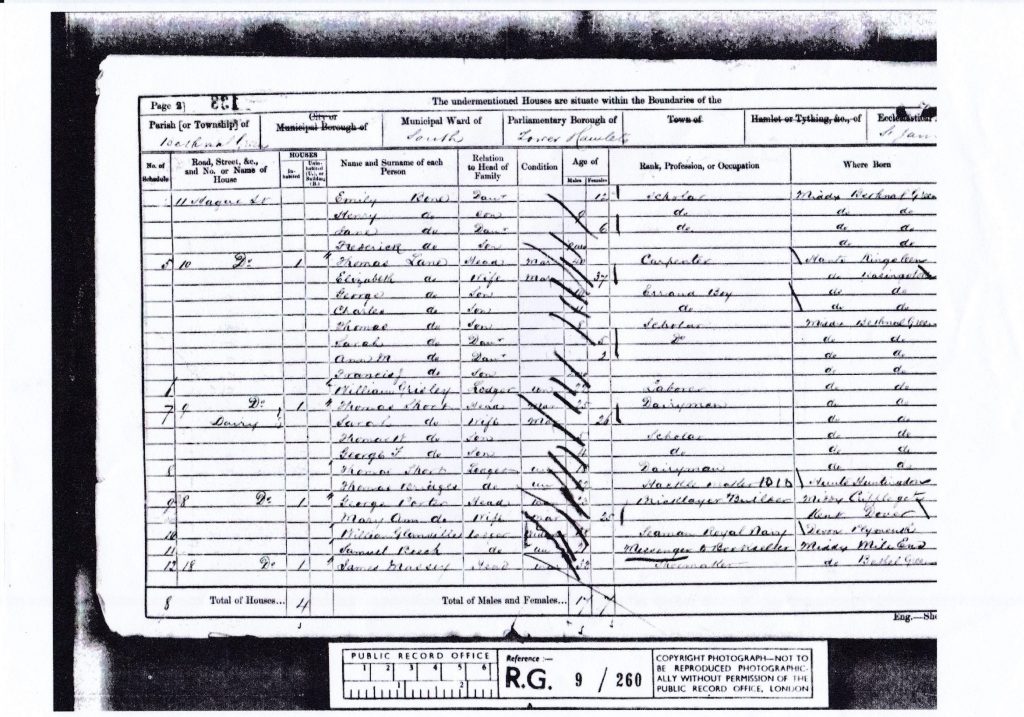 Page 2] 133 The undermentioned Houses are situate within the Boundaries of the
Parish [or Township] of City or Municipal Borough of Municipal Ward of Parliamentary Borough of Town of Hamlet or Tything, &c., of Ecclesiastical
South Tower Hamlets St Jam
No. of Schedule Road, Street, &c., and No. or Name of House HOUSES Inhabited Uninhabited (U.), or Building (B.) Name and Surname of each Person Relation to Head of Family Condition Age of Males Females Rank, Profession, or Occupation Where Born
11 Hague St Emily Daur 12 Scholar Middx Bethnal Green
Henry do Son 9 do do do
Jane do Daur 6 do do do
Frederick do Son do do
5 10 Do 1 Thomas Lane Head Mar 40 Carpenter Hants
Elizabeth do Wife Mar 37 do
George do Son Errand Boy do do
Charles do Son do do do
Thomas do Son Scholar Middx Bethnal Green
Sarah do Daur 5 Do do do
Ann M do Daur 2 do do
Francis J do Son do do
William Grisley Lodger un Laborer do do
7 9 Do 1 Thomas Short Head Mar 25 Dairyman do do
Dairy Sarah do Wife Mar 26 do do
Thomas W do Son Scholar do do
George F do Son 4 do do
8 Thomas Short Lodger un Dairyman do do
Thomas Bridges do un
9 8 Do 1 George Porter Head 23 Builder Middx Cripplegate
Mary Ann do Wife Mar 25 Kent Dover
10 William Lodger Seaman Royal Navy Devon Plymouth
11 Samuel Beech do un Messenger to Bookseller Middx Mile End
12 18 Do 1 James Massey Head 32 Shoemaker do
8 Total of Houses... 4 Total of Males and Females... 17 7
Eng.—She
PUBLIC RECORD OFFICE
1 2 3 4 5 6
1 2
Reference:—
R.G. 9 / 260
COPYRIGHT PHOTOGRAPH—NOT TO
BE REPRODUCED PHOTOGRAPHIC-
ALLY WITHOUT PERMISSION OF THE
PUBLIC RECORD OFFICE, LONDON